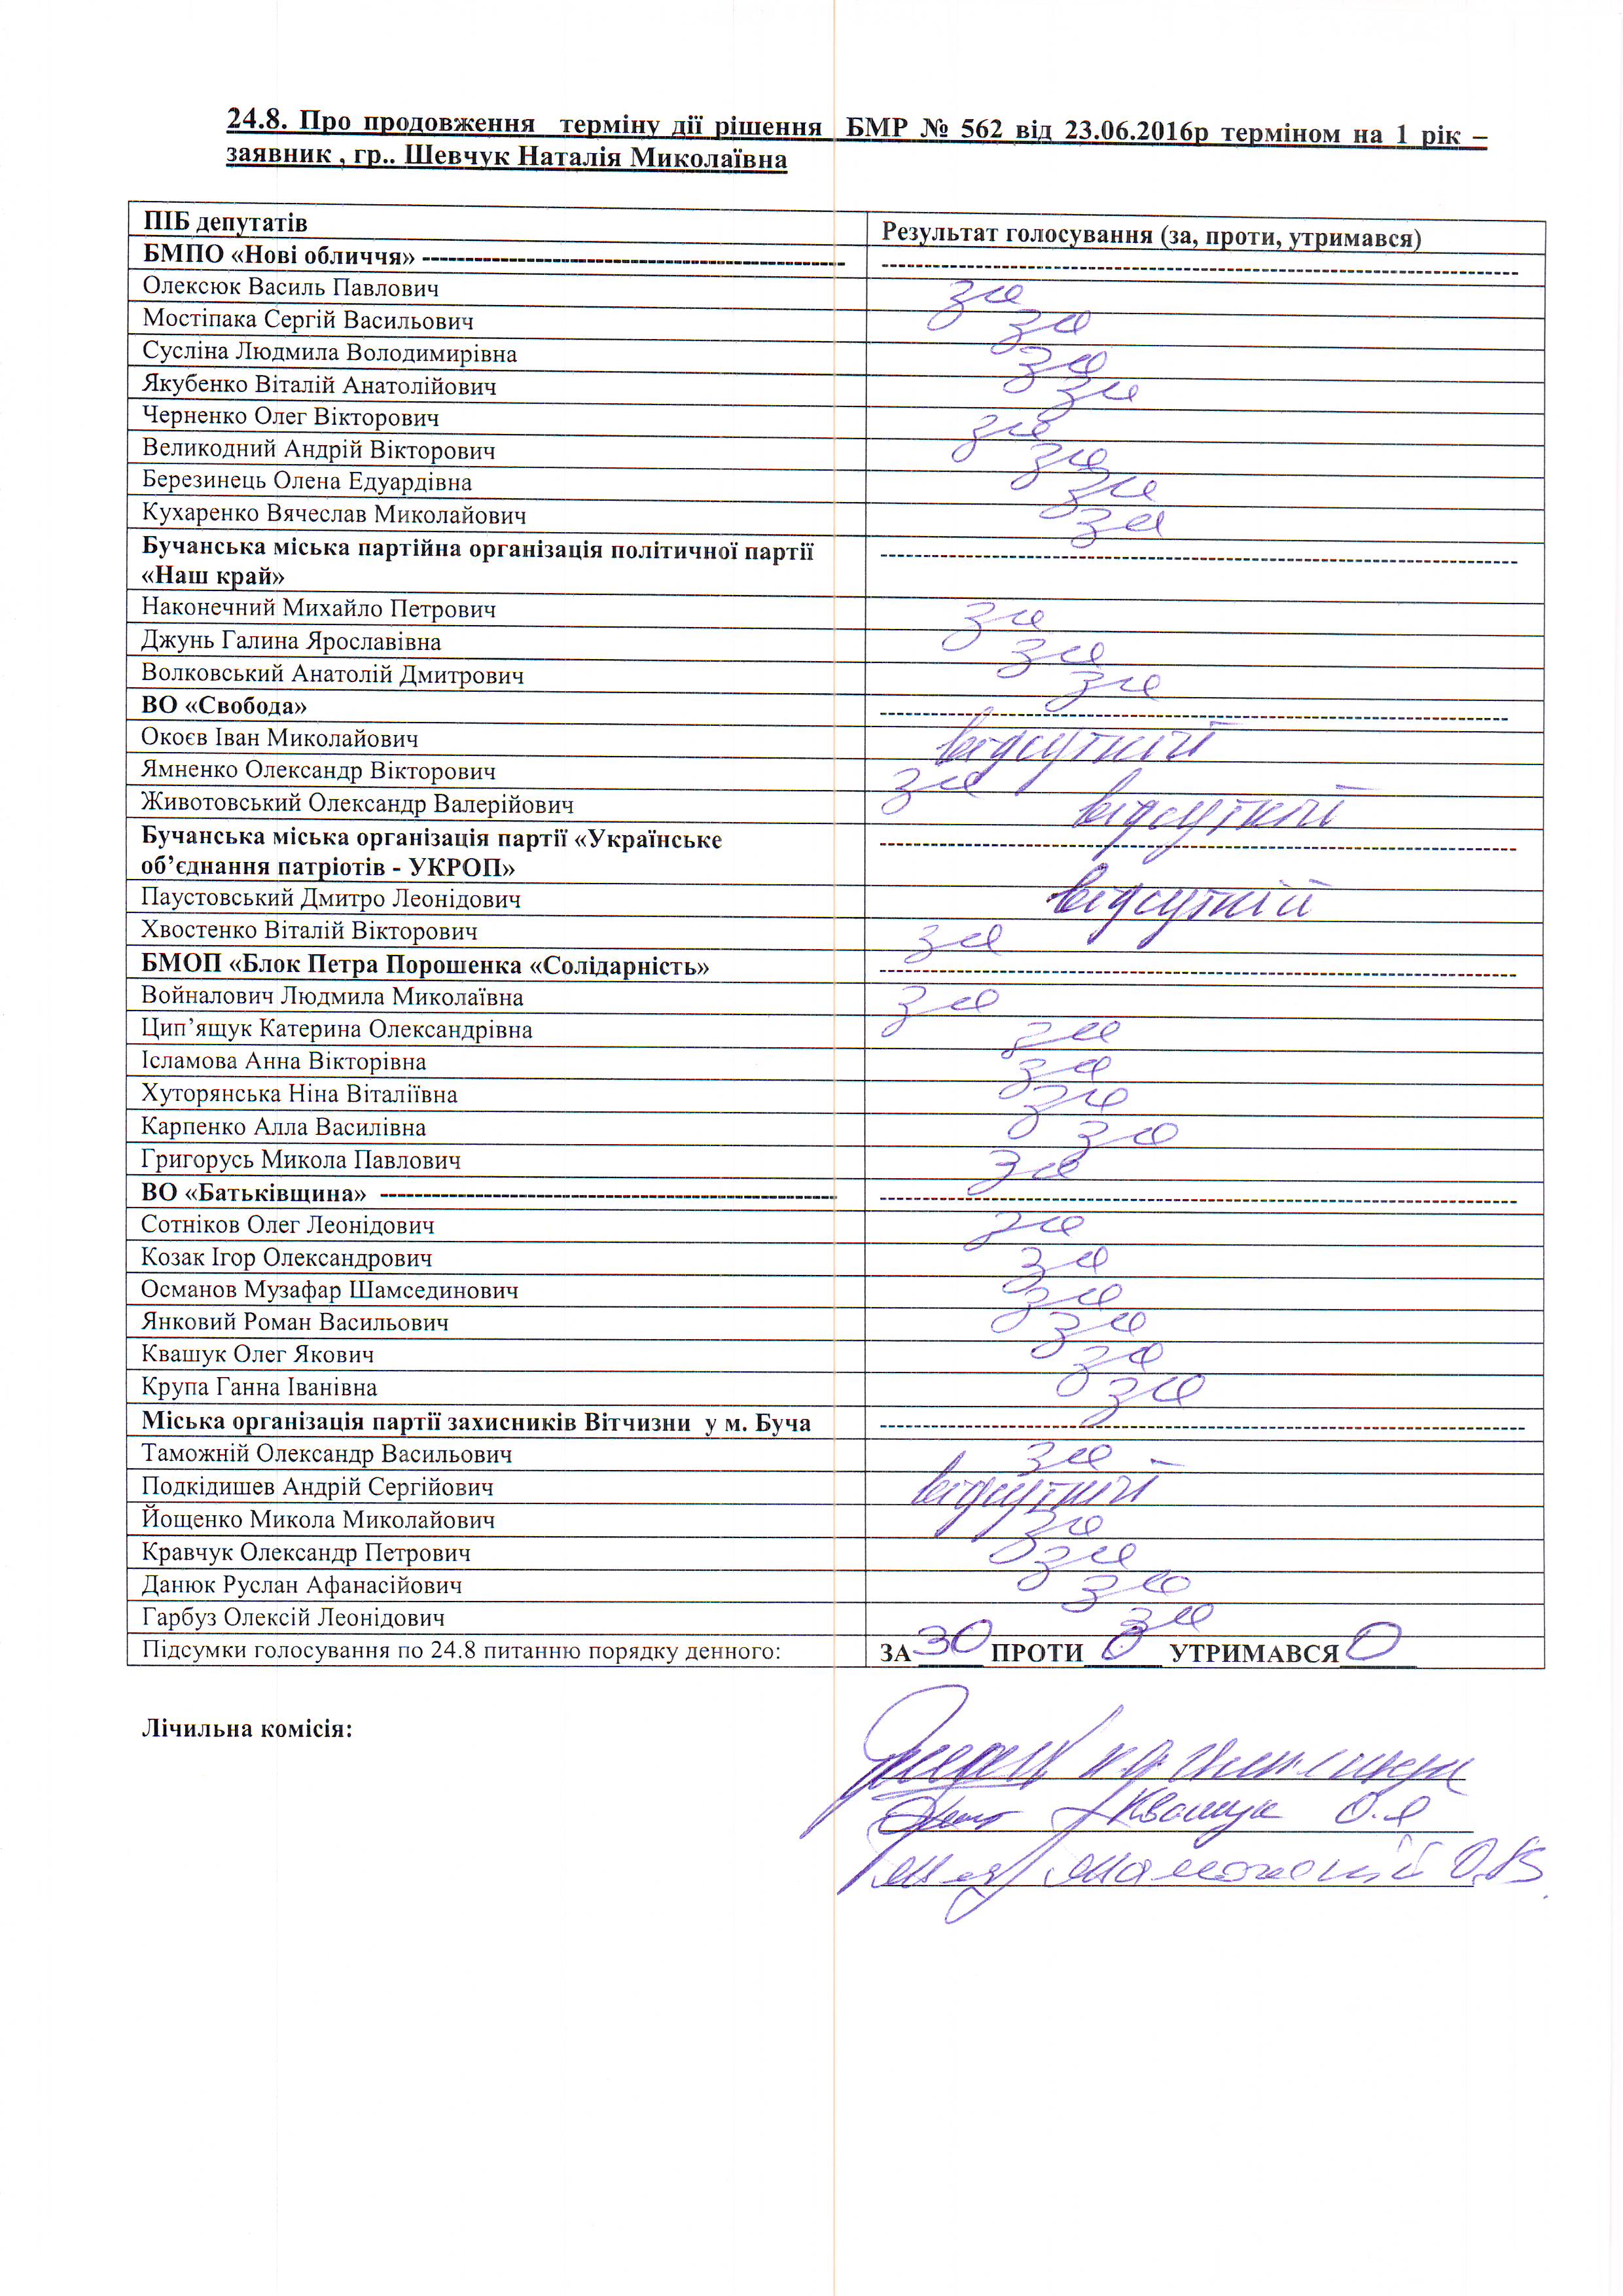 24.8. Про продовження терміну дії рішення БМР № 562 від 23.06.2016р терміном на 1 рік –
заявник , гр.. Шевчук Наталія Миколаївна
ПІБ депутатів Результат голосування (за, проти, утримався)
БМПО «Нові обличчя» ------------------------------------------------- --------------------------------------------------------------------------
Олексюк Василь Павлович за
Мостіпака Сергій Васильович за
Сусліна Людмила Володимирівна за
Якубенко Віталій Анатолійович за
Черненко Олег Вікторович за
Великодний Андрій Вікторович за
Березинець Олена Едуардівна за
Кухаренко Вячеслав Миколайович за
Бучанська міська партійна організація політичної партії --------------------------------------------------------------------------
«Наш край»
Наконечний Михайло Петрович за
Джунь Галина Ярославівна за
Волковський Анатолій Дмитрович за
ВО «Свобода» --------------------------------------------------------------------------
Окоєв Іван Миколайович відсутній
Ямненко Олександр Вікторович за
Животовський Олександр Валерійович відсутній
Бучанська міська організація партії «Українське --------------------------------------------------------------------------
об’єднання патріотів - УКРОП»
Паустовський Дмитро Леонідович відсутній
Хвостенко Віталій Вікторович за
БМОП «Блок Петра Порошенка «Солідарність» --------------------------------------------------------------------------
Войналович Людмила Миколаївна за
Цип’ящук Катерина Олександрівна за
Ісламова Анна Вікторівна за
Хуторянська Ніна Віталіївна за
Карпенко Алла Василівна за
Григорусь Микола Павлович за
ВО «Батьківщина» ----------------------------------------------------- --------------------------------------------------------------------------
Сотніков Олег Леонідович за
Козак Ігор Олександрович за
Османов Музафар Шамсединович за
Янковий Роман Васильович за
Квашук Олег Якович за
Крупа Ганна Іванівна за
Міська організація партії захисників Вітчизни у м. Буча ---------------------------------------------------------------------------
Таможній Олександр Васильович за
Подкідишев Андрій Сергійович відсутній
Йощенко Микола Миколайович за
Кравчук Олександр Петрович за
Данюк Руслан Афанасійович за
Гарбуз Олексій Леонідович за
Підсумки голосування по 24.8 питанню порядку денного: ЗА 30 ПРОТИ 0 УТРИМАВСЯ 0
Лічильна комісія:
Квашук О.Я
Таможній О.В.